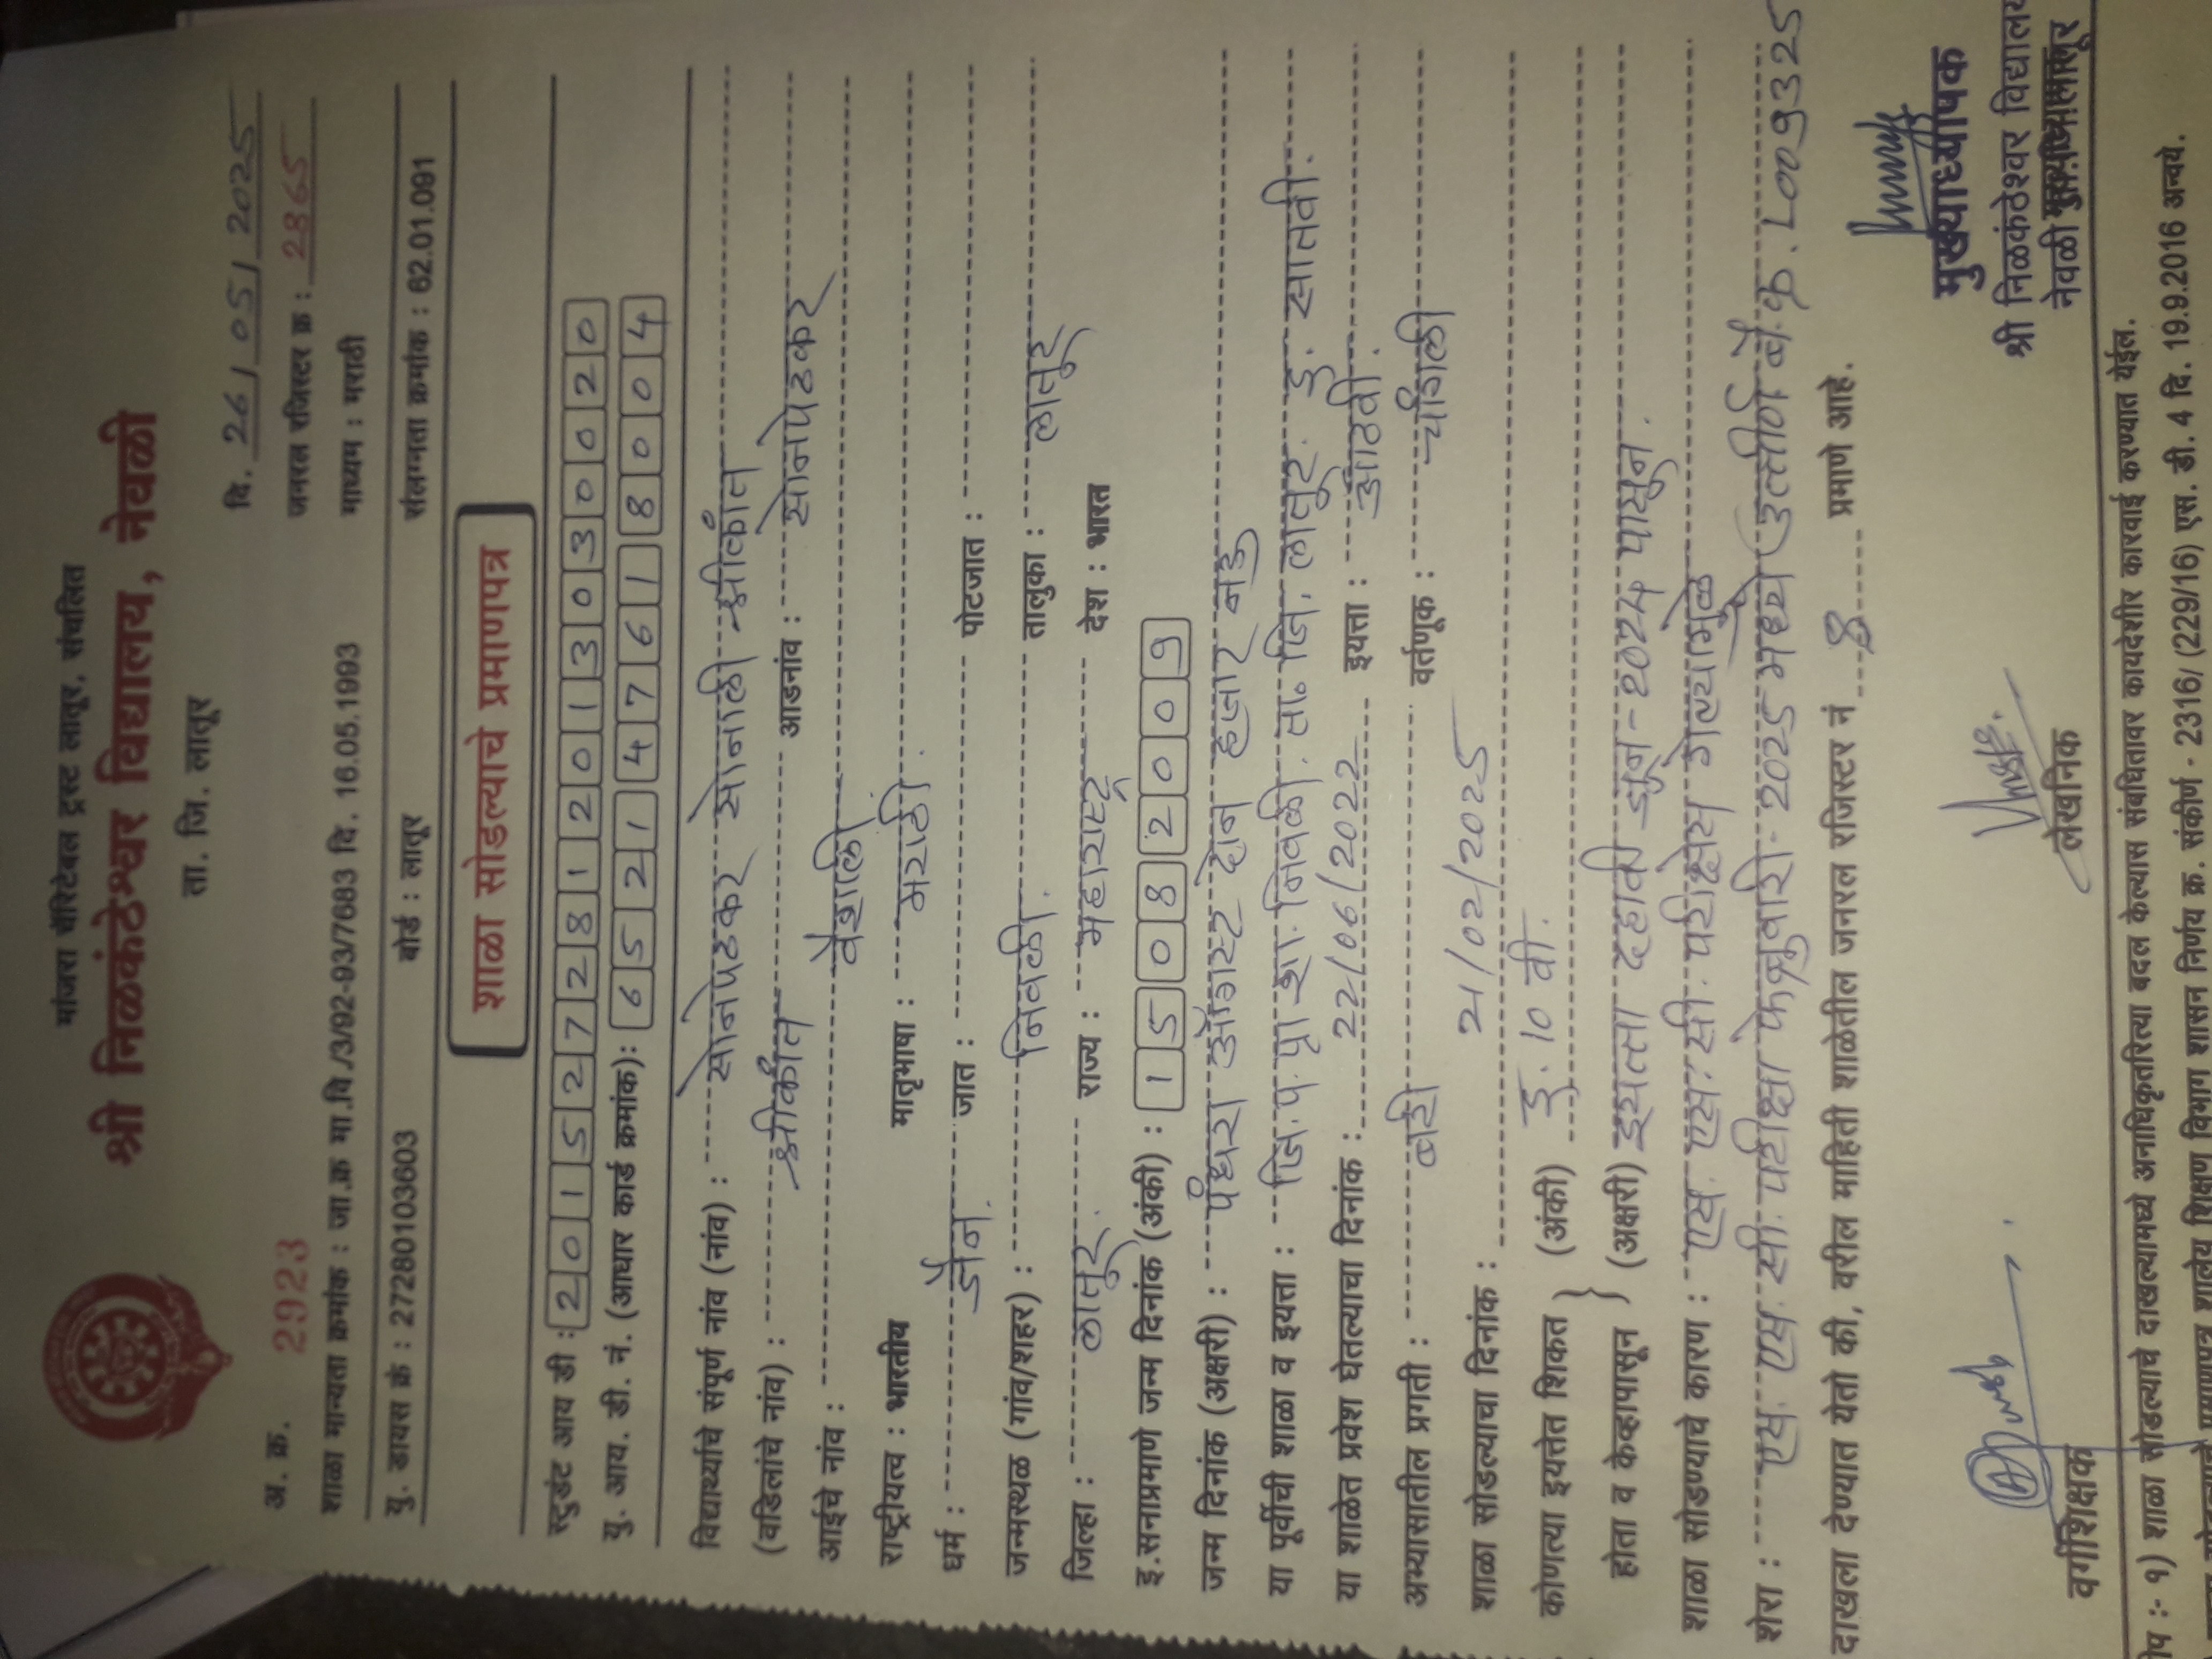 मांजरा चॅरिटेबल ट्रस्ट लातूर, संचलित
श्री निळकंठेश्वर विद्यालय, नेवळी
ता. जि. लातूर
अ. क्र. 2923
दि. 26/05/2025
जनरल रजिस्टर क्र : 2865
शाळा मान्यता क्रमांक : जा.क्र मा.वि./3/92-93/7683 दि. 16.05.1993
माध्यम : मराठी
यु. डायस क्रं : 27280103603 बोर्ड : लातूर संलग्नता क्रमांक : 62.01.091
शाळा सोडल्याचे प्रमाणपत्र
स्टुडंट आय डी : 2015272812013030020
यु. आय. डी. नं. (आधार कार्ड क्रमांक): 652147618004
विद्यार्थ्याचे संपूर्ण नांव (नांव) : सोनपेठकर सोनाली श्रीकांत
(वडिलांचे नांव) : श्रीकांत आडनांव : सोनपेठकर
आईचे नांव : वैशाली
राष्ट्रीयत्व : भारतीय मातृभाषा : मराठी.
धर्म : जैन. जात : पोटजात :
जन्मस्थळ (गांव/शहर) : निवळी. तालुका : लातूर
जिल्हा : लातूर. राज्य : महाराष्ट्र देश : भारत
इ.सनाप्रमाणे जन्म दिनांक (अंकी) : 15082009
जन्म दिनांक (अक्षरी) : पंधरा ऑगस्ट दोन हजार नऊ
या पूर्वीची शाळा व इयत्ता : जि.प.प्रा.शा. निवळी. ता. जि. लातूर इ. सातवी.
या शाळेत प्रवेश घेतल्याचा दिनांक : 22/06/2022 इयत्ता : आठवी.
अभ्यासातील प्रगती : बरी वर्तणूक : चांगली
शाळा सोडल्याचा दिनांक : 21/02/2025
कोणत्या इयत्तेत शिकत } (अंकी) इ. 10 वी.
होता व केव्हापासून } (अक्षरी) इयत्ता दहावी जून-2024 पासून.
शाळा सोडण्याचे कारण : एस. एस. सी. परीक्षेस गेल्यामुळे
शेरा : एस. एस. सी. परीक्षा फेब्रुवारी-2025 मध्ये उत्तीर्ण बै.क्र. L009325
दाखला देण्यात येतो की, वरील माहिती शाळेतील जनरल रजिस्टर नं 8 प्रमाणे आहे.
वर्गशिक्षक लेखनिक मुख्याध्यापक
श्री निळकंठेश्वर विद्यालय
नेवळी
:- १) शाळा सोडल्याचे दाखल्यामध्ये अनाधिकृतरित्या बदल केल्यास संबंधितावर कायदेशीर कारवाई करण्यात येईल.
शालेय शिक्षण विभाग शासन निर्णय क्र. संकीर्ण - 2316/ (229/16) एस. डी. 4 दि. 19.9.2016 अन्वये.